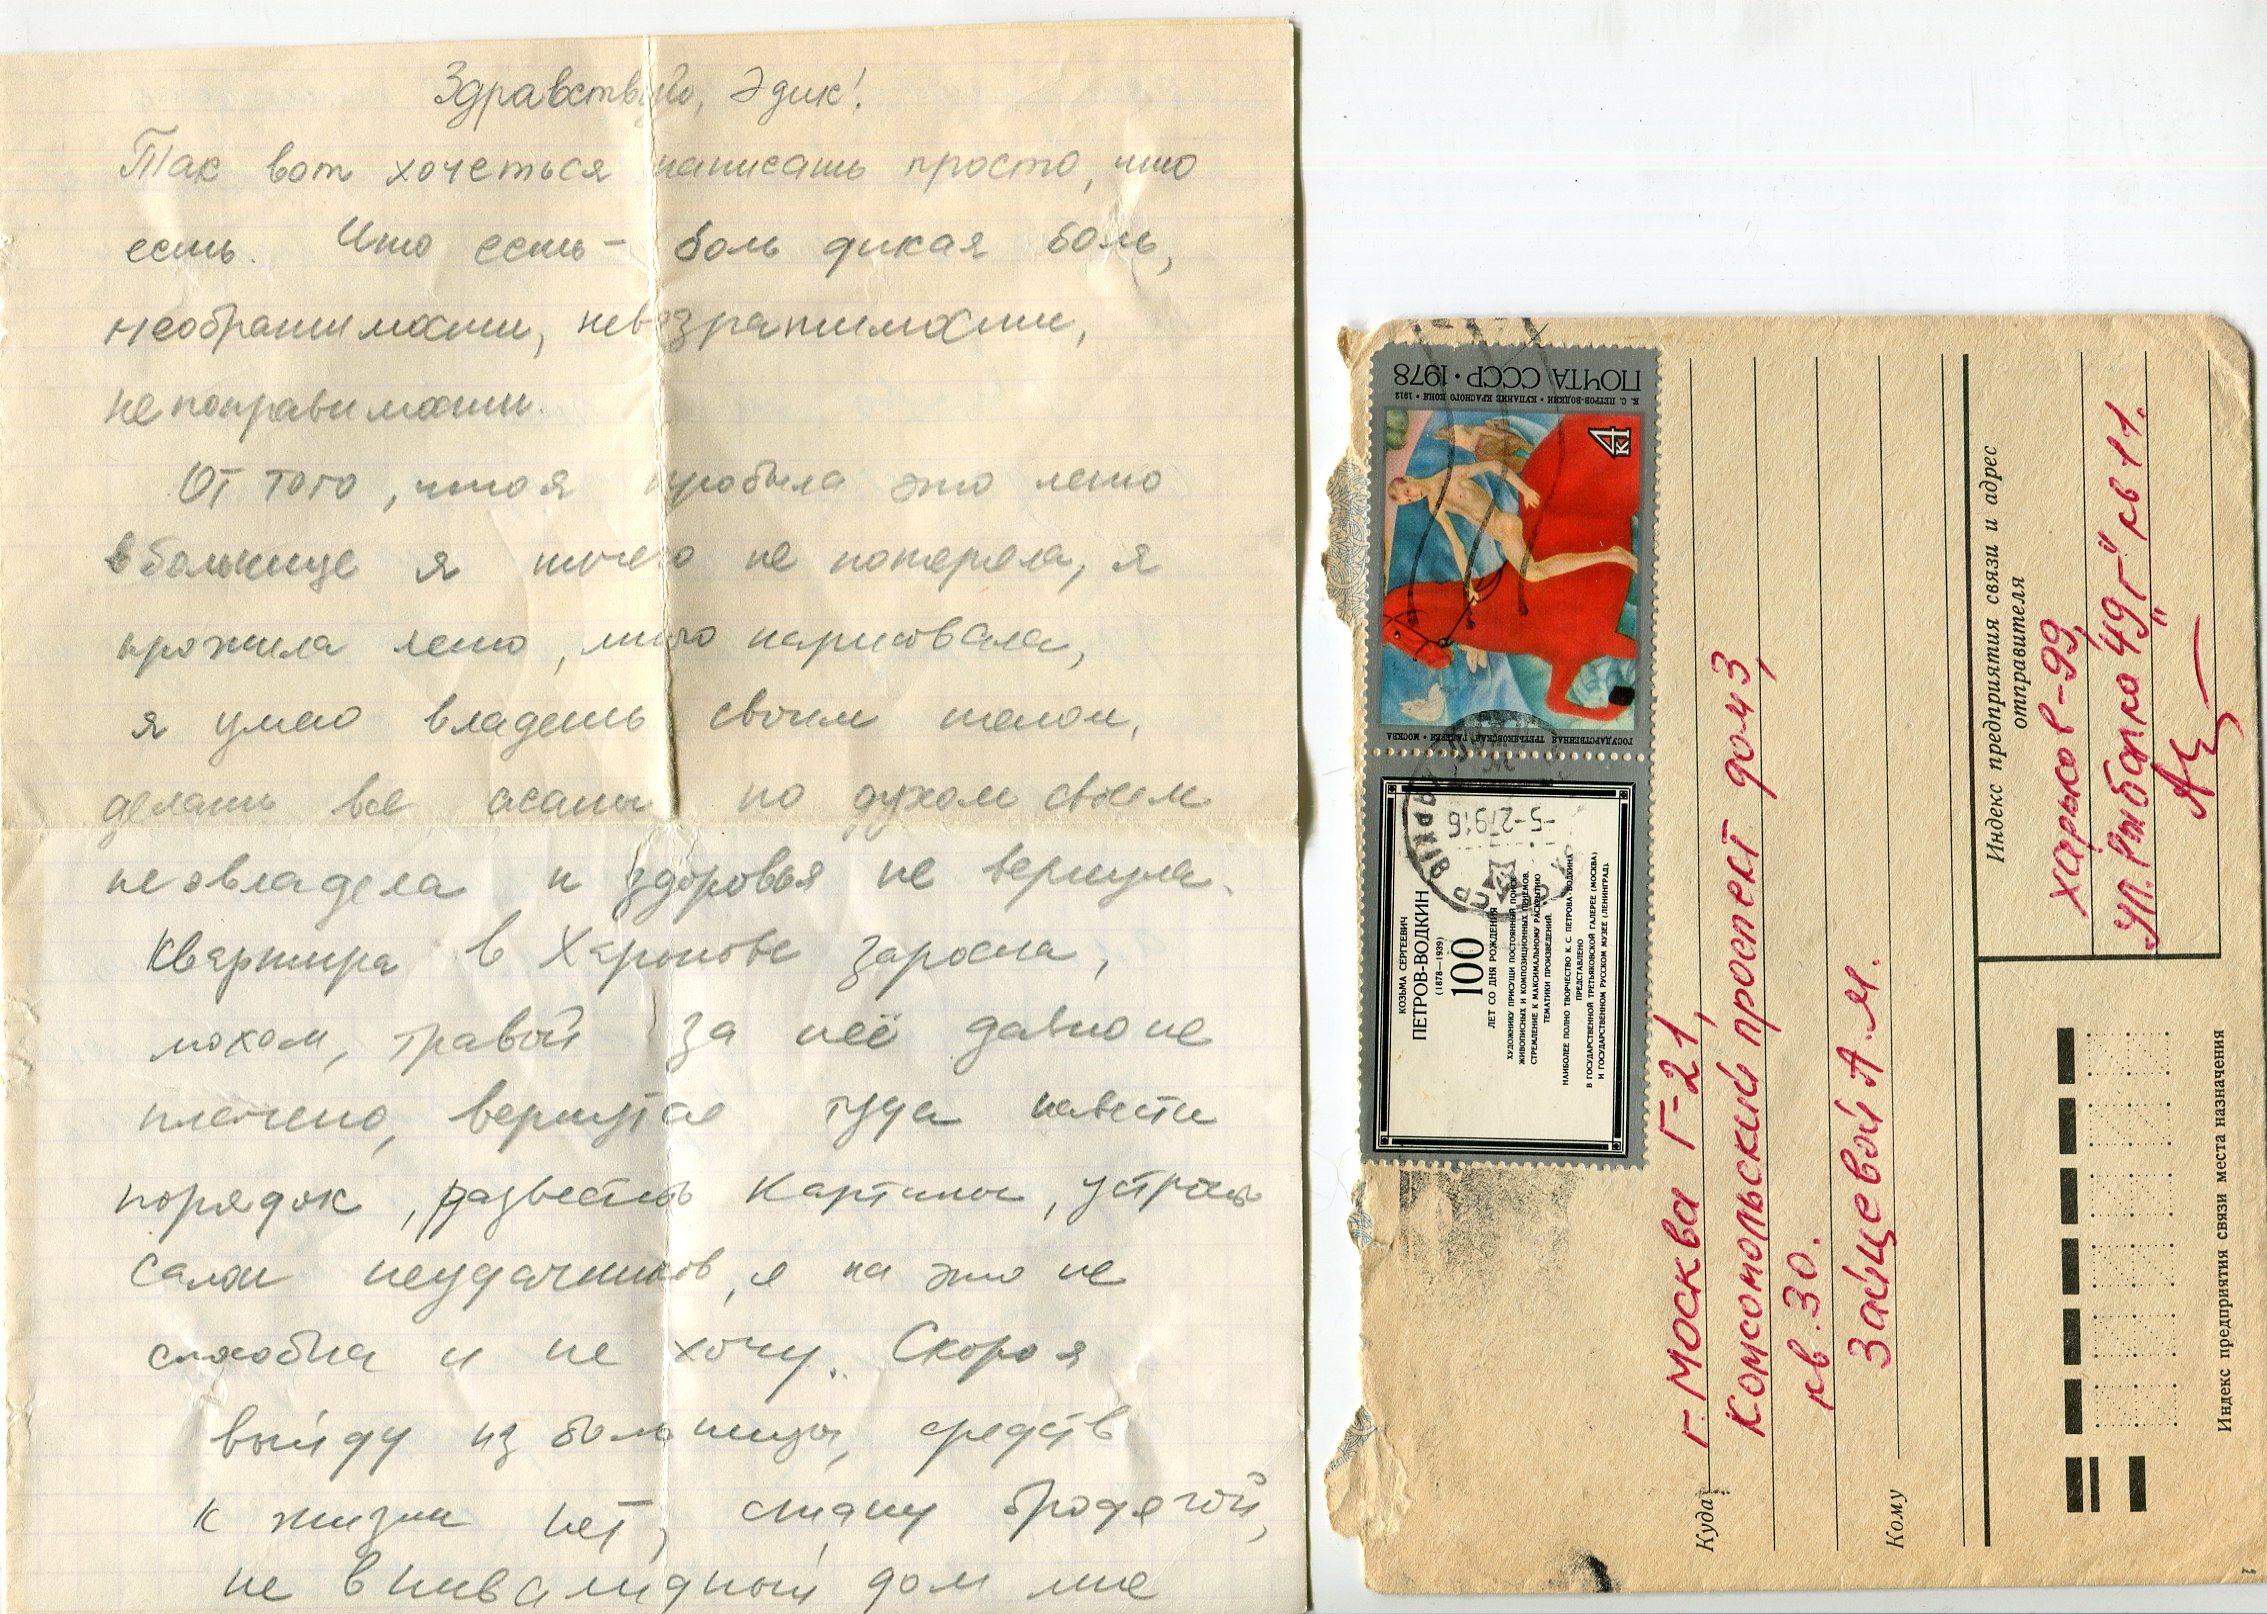 Здравствуй, Эдик!
Так вот хочеться написать просто, что
есть. Что есть – боль дикая боль,
необратимости, невозратимости,
непоправимости.
От того, что я пробыла это лето
в больнице я ничего не потеряла, я
прожила лето, много нарисовала,
я умею владеть своим телом,
делать все асаны но духом своем
не овладела и здоровья не вернула.
Квартира в Харькове заросла,
мохом, травой за неё давно не
плачено, вернутся туда навести
порядок, развесить картины, устроить
салон неудачников, я на это не
способна и не хочу.. Скоро я
выйду из больницы, средств
к жизни нет, стану бродягой,
не в инвалидный дом мне
ПОЧТА СССР • 1978
К. С. ПЕТРОВ-ВОДКИН • КУПАНИЕ КРАСНОГО КОНЯ • 1912
4к
ГОСУДАРСТВЕННАЯ ТРЕТЬЯКОВСКАЯ ГАЛЕРЕЯ • МОСКВА
КОЗЬМА СЕРГЕЕВИЧ
ПЕТРОВ-ВОДКИН
(1878—1939)
100
ЛЕТ СО ДНЯ РОЖДЕНИЯ
ХУДОЖНИКУ ПРИСУЩИ ПОСТОЯННЫЙ ПОИСК
ЖИВОПИСНЫХ И КОМПОЗИЦИОННЫХ ПРИЕМОВ,
СТРЕМЛЕНИЕ К МАКСИМАЛЬНОМУ РАСКРЫТИЮ
ТЕМАТИКИ ПРОИЗВЕДЕНИЙ.
НАИБОЛЕЕ ПОЛНО ТВОРЧЕСТВО К. С. ПЕТРОВА-ВОДКИНА
ПРЕДСТАВЛЕНО
В ГОСУДАРСТВЕННОЙ ТРЕТЬЯКОВСКОЙ ГАЛЕРЕЕ (МОСКВА)
И ГОСУДАРСТВЕННОМ РУССКОМ МУЗЕЕ (ЛЕНИНГРАД).
-5-27916
Куда г. Москва Г-21,
Комсомольский проспект дом 3,
кв. 30.
Кому Зайцевой А. М.
Индекс предприятия связи и адрес
отправителя
Харьков-99,
ул. Рыбалко 49 "г" кв 11.
АЗ
Индекс предприятия связи места назначения
1